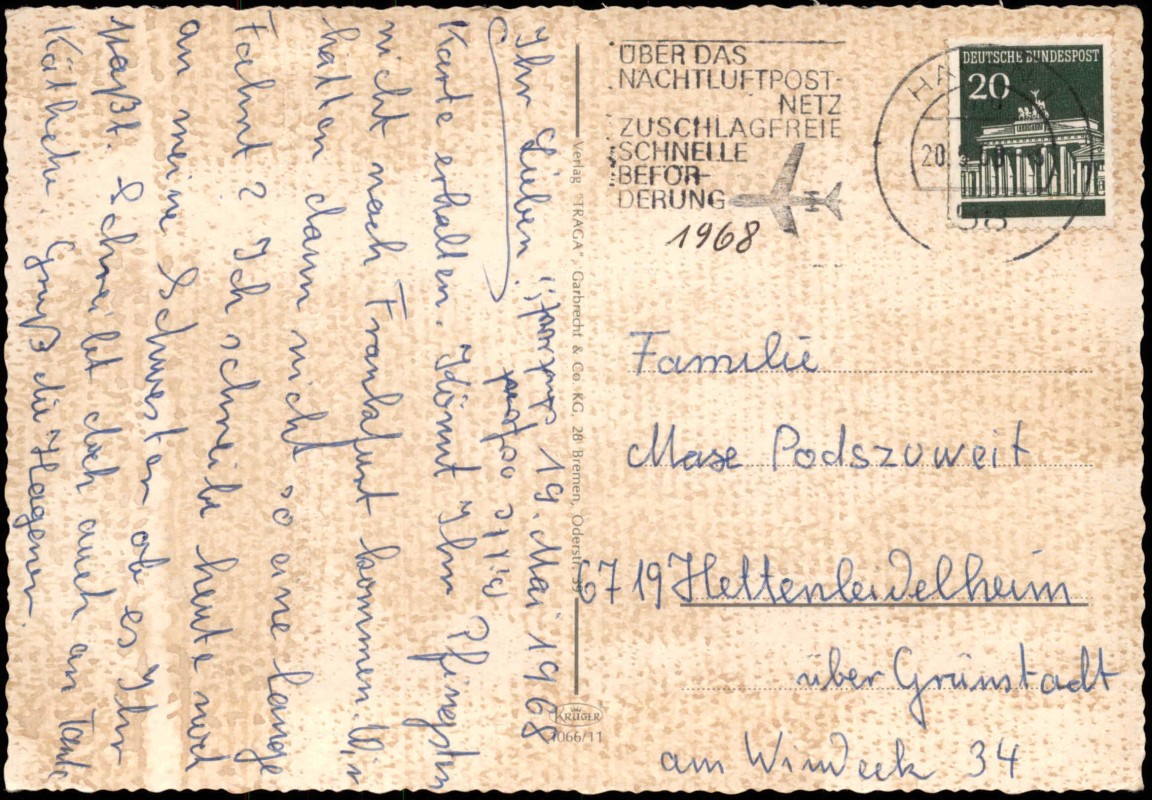 19. Mai 1968
Ihr Lieben
Karte erhalten. Könnt Ihr Pfingsten
nicht nach Frankfurt kommen. Wir
hätten dann nicht so eine lange
Fahrt? Ich schreibe heute mal
an meine Schwester ob es Ihr
paßt. Schreibt doch auch an Tante
Käthchen Gruß die Hagener.
Verlag "TRAGA", Garbrecht & Co. KG, 28 Bremen, Oderstr.
KRÜGER
1066/11
ÜBER DAS
NACHTLUFTPOST-
NETZ
ZUSCHLAGFREIE
SCHNELLE
BEFÖR-
DERUNG
1968
DEUTSCHE BUNDESPOST
20
HA
20.
58
Familie
Mase Podszuweit
6719 Hettenleidelheim
über Grünstadt
am Windeck 34